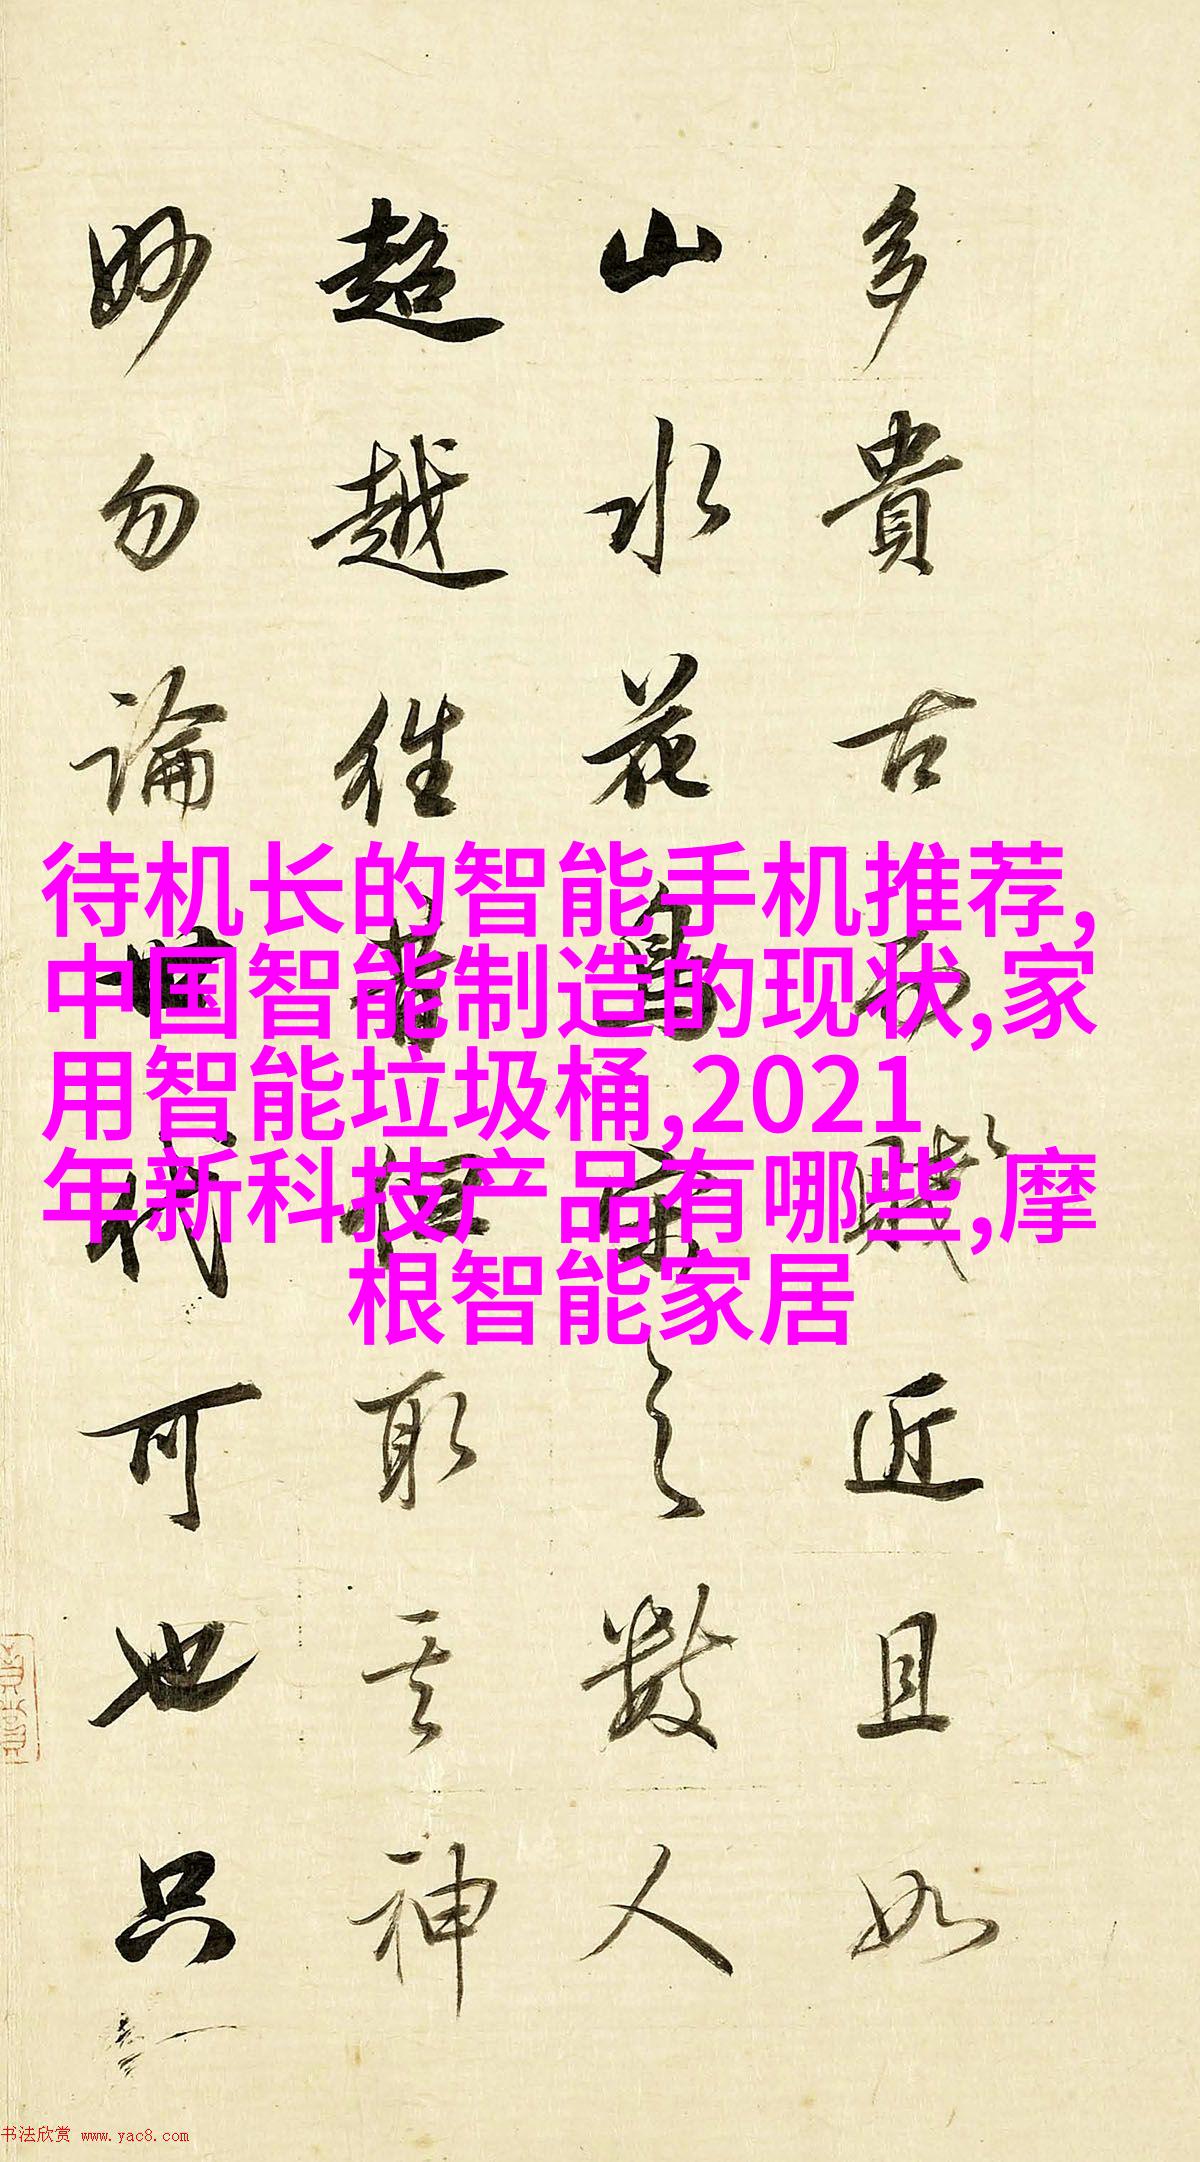 多貴古而賤近且如
山水花鳥宋之數人
超越往昔但取其神
妙勿論世代可也只
待机长的智能手机推荐,
中国智能制造的现状,家
用智能垃圾桶,2021
年新科技产品有哪些,摩
根智能家居
书法欣赏 www.yac8.com